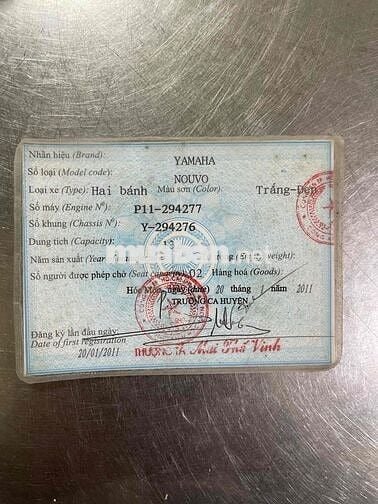 Nhãn hiệu (Brand): YAMAHA
Số loại (Model code): NOUVO
Loại xe (Type): Hai bánh Màu sơn (Color): Trắng-Đen
Số máy (Engine Nº): P11-294277
Số khung (Chassis Nº): Y-294276
Dung tích (Capacity):
Năm sản xuất (Year weight):
Số người được phép chở (Seat capacity): 02 Hàng hoá (Goods):
Hóc Môn, ngày (date) 20 / 1 năm 2011
TRƯỞNG CA HUYỆN
Đăng ký lần đầu ngày
Date of first registration
20/01/2011
THƯỢNG TÁ Mai Thế Vinh
muaban.net